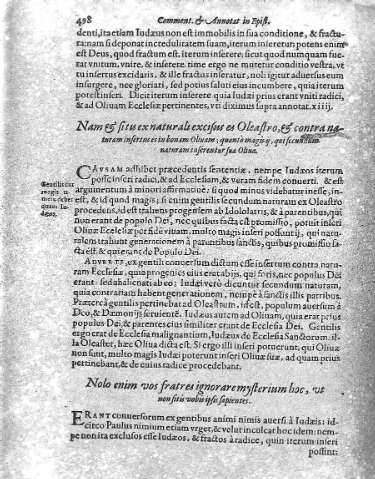 498 Comment. & Annotat. in Epist.
denti, ita etiam Iudæus non est immobilis in sua conditione, & fractu-
ra: nam si deponat incredulitatem suam, iterum inseretur potens enim
est Deus, quod fractum est, iterum inserere, & sicut quod nunquam fue-
rat vnitum, vnire, & inserere. time ergo ne mutetur conditio vestra, vt
tu insertus excidaris, & ille fractus inseratur, noli igitur aduersus eum
insurgere, nec gloriari, sed potius saluti eius incumbe, quia iterum
potest inseri. Dicit iterum inserere quia Iudæi prius erant vniti radici,
& ad Oliuam Ecclesiæ pertinentes, vti diximus supra annotat. xiiij.
Nam & si tu ex naturali excisus es Oleastro, & contra na-
turam insertus es in bonam Oliuam; quanto magis ij, qui secundum
naturam inserentur suæ Oliuæ.
CAVSAM adhibet præcedentis sententiæ, nempe Iudæos iterum
posse inseri radici, & ad Ecclesiam, & veram fidem conuerti. & est
argumentum à minori affirmatiuè: si quod minus videbatur inesse, in-
est, & id quod magis; si enim gentilis secundum naturam ex Oleastro
procedens, id est trahens progeniem ab Idololatris, & à parentibus, qui
non erant de populo Dei, nec quibus facta est promissio, potuit inseri
Oliuæ Ecclesiæ per fidem tuam, multo magis inseri possunt ij, qui natu-
ralem trahunt generationem à parentibus sanctis, quibus promissio fa-
cta est, & qui erant de Populo Dei.
ADVERTE, ex gentili conuersum dictum esse insertum contra natu-
ram Ecclesiæ, quia progenies eius erat ab ijs, qui foris, nec populus Dei
erant sed ab alienati ab eo: Iudæi verò dicuntur secundum naturam,
quia contrariam habent generationem, nempè à sanctis illis patribus.
Præterea gentilis pertinebat ad Oleastrum, id est, populum auersum à
Deo, & Dæmonijs seruientem. Iudæus autem ad Oliuam, quia erat prius
populus Dei, & parentes eius similiter erant de Ecclesia Dei. Gentilis
ergo erat de Ecclesia malignantium, Iudæus de Ecclesia Sanctorum. il-
la Oleaster, hæc Oliua dicta est. Si ergo illi inseri potuerunt, qui Oliuæ
non sunt, multo magis Iudæi poterunt inseri Oliuæ suæ, ad quam prius
pertinebant, & de cuius radice procedebant.
Nolo enim vos fratres ignorare mysterium hoc, vt
non sitis vobis ipsis sapientes.
ERANT conuersorum ex gentibus animi nimis auersi à Iudæis: id-
circo Paulus nimium etiam vrget, & velut inculcat hoc idem: nem-
pe non ita exclusos esse Iudæos, & fractos à radice, quin iterum inseri
possint: